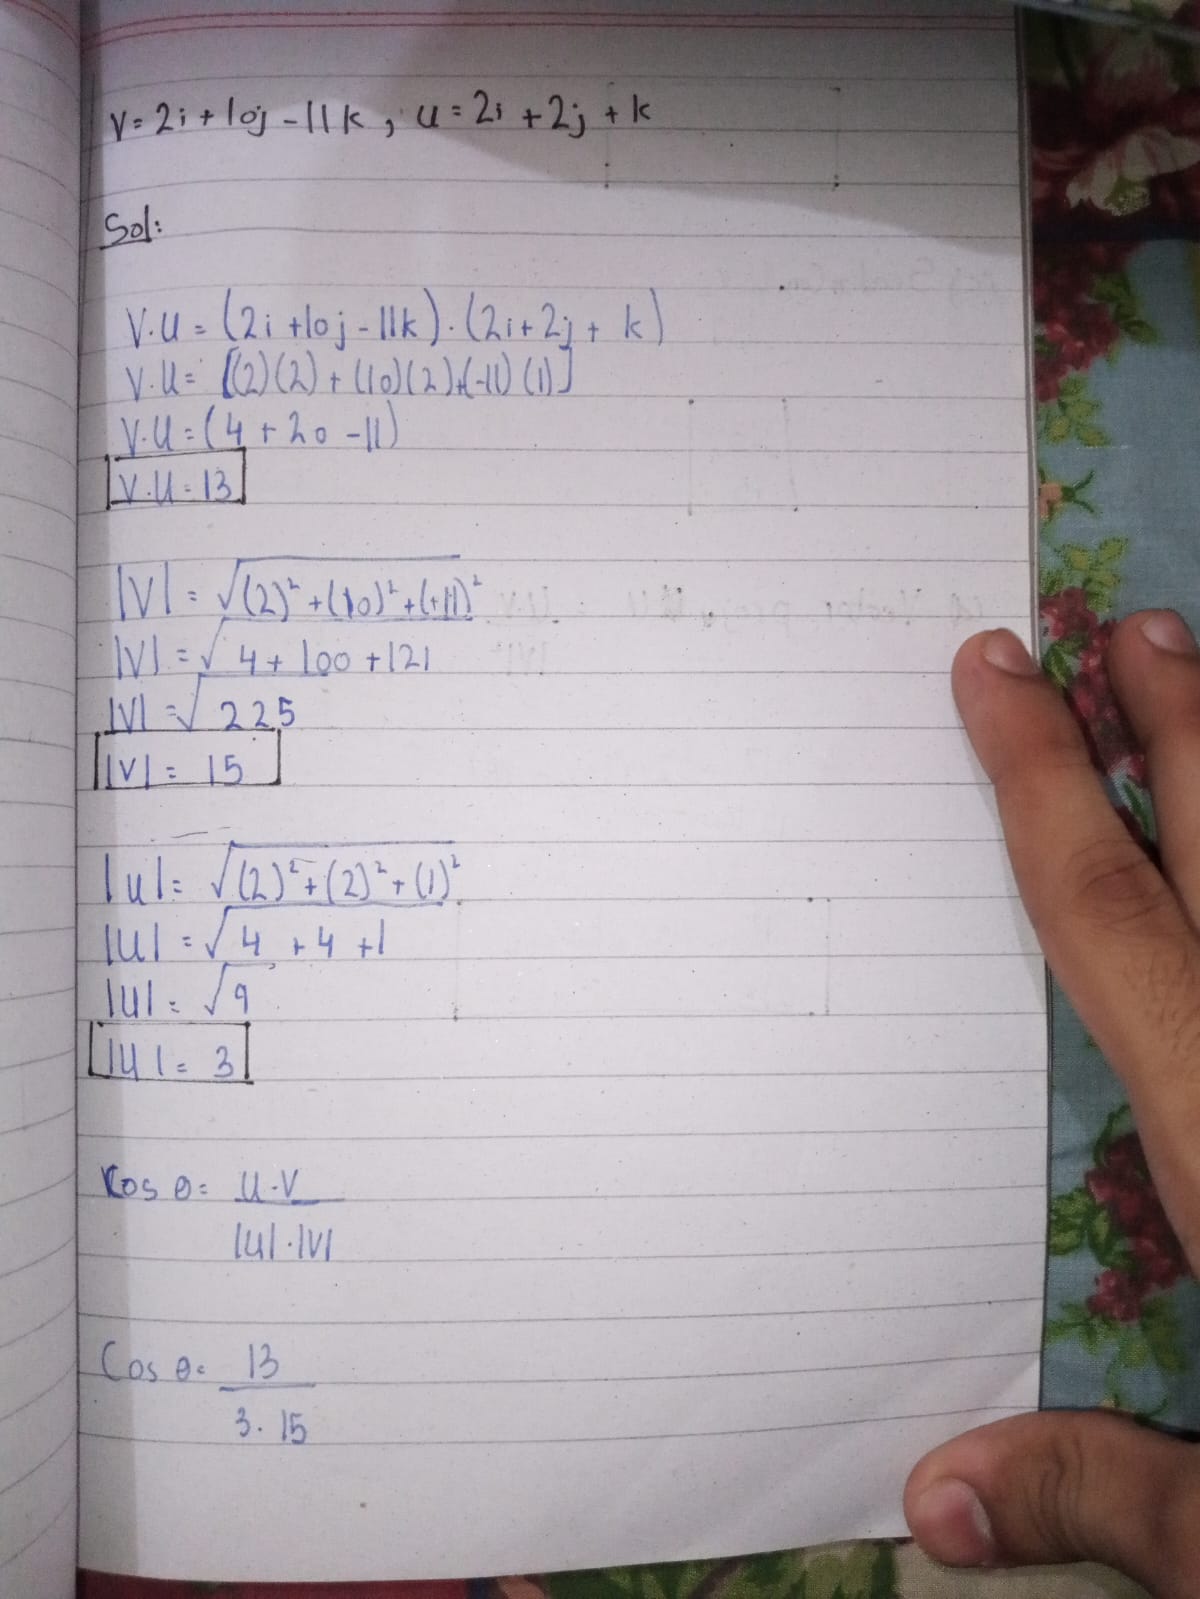 V = 2i + 10j - 11k , u = 2i + 2j + k
Sol:
V.U = (2i + 10j - 11k) . (2i + 2j + k)
V.U = [(2)(2) + (10)(2) + (-11)(1)]
V.U = (4 + 20 - 11)
V.U = 13
|V| = √(2)² + (10)² + (+11)²
|V| = √4 + 100 + 121
|V| = √225
|V| = 15
|u| = √(2)² + (2)² + (1)²
|U| = √4 + 4 + 1
|U| = √9
|U| = 3
Cos θ = U.V
|U| . |V|
Cos θ = 13
3 . 15